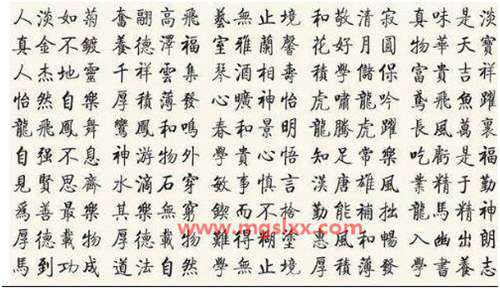 人淡如菊 奮翮高飛 藝無止境 和敬清寂 真味是淡
真金不鍍 養德澤福 室雅蘭馨 花好月圓 物華天寶
人杰地靈 千祥雲集 琴酒相壽 積學儲 富貴吉祥
怡然自樂 厚積薄發 心曠神怡 虎嘯龍吟 鳶飛魚躍
龍飛鳳舞 鸞鳳和鳴 春和景明 龍騰虎躍 長風萬里
自强不息 神游物外 學貴心悟 知足常樂 吃虧是福
見賢思齊 水滴石穿 敏事慎言 漢唐雄風 業精于勤
為善最樂 其樂無窮 鍥而不捨 勤能補拙 龍馬精神
www.mgslxx.com
厚德載物 厚德載物 難得糊塗 惠風和暢 入幽出朗
馬到功成 道法自然 學無止境 厚積薄發 學書養志